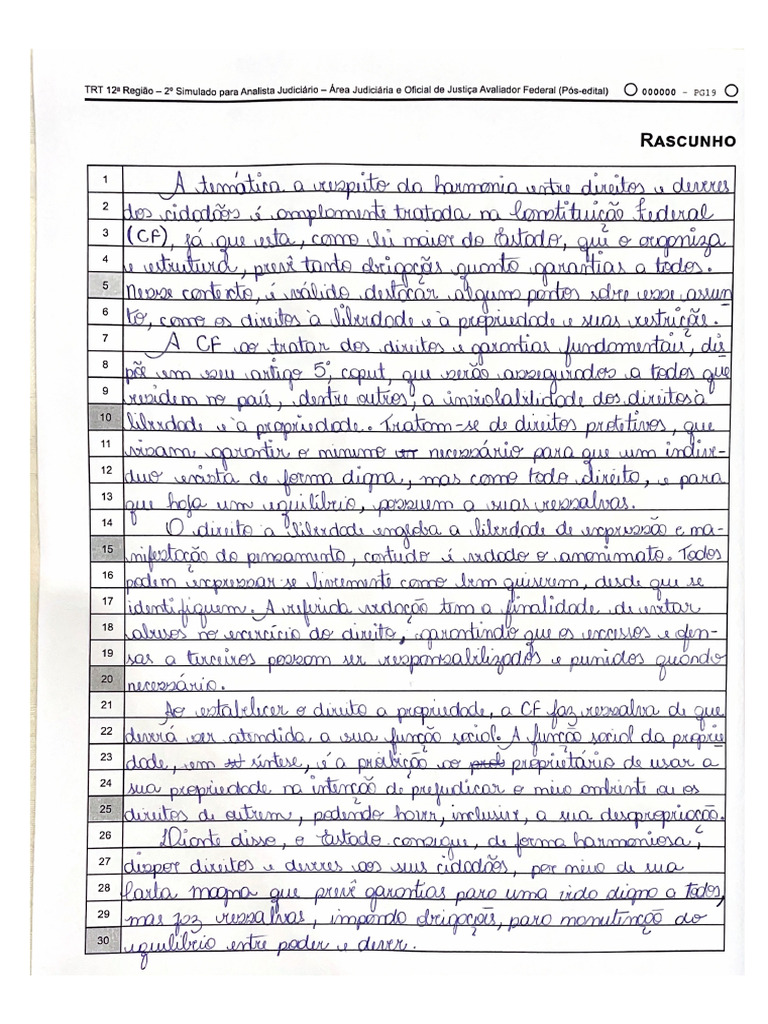 TRT 12ª Região – 2º Simulado para Analista Judiciário – Área Judiciária e Oficial de Justiça Avaliador Federal (Pós-edital) 000000 - PG19
RASCUNHO
1 A temática a respeito da harmonia entre direitos e deveres
2 dos cidadãos é amplamente tratada na Constituição Federal
3 (CF), já que esta, como lei maior do Estado, que o organiza
4 e estrutura, prevê tanto obrigações quanto garantias a todos.
5 Nesse contexto, é válido destacar alguns pontos sobre esse assun
6 to, como os direitos à liberdade e à propriedade e suas restrições.
7 A CF ao tratar dos direitos e garantias fundamentais, dis
8 põe em seu artigo 5º, caput, que serão assegurados a todos que
9 residem no país, dentre outros, a inviolabilidade dos direitos à
10 liberdade e à propriedade. Tratam-se de direitos protetivos, que
11 visam garantir o mínimo necessário para que um indiví-
12 duo exista de forma digna, mas como todo direito, e para
13 que haja um equilíbrio, possuem a suas ressalvas.
14 O direito a liberdade engloba a liberdade de expressão e ma-
15 nifestação do pensamento, contudo é vedado o anonimato. Todos
16 podem expressar-se livremente como bem quiserem, desde que se
17 identifiquem. A referida vedação tem a finalidade de evitar
18 abusos no exercício do direito, garantindo que os excessos e ofen-
19 sas a terceiros possam ser responsabilizados e punidos quando
20 necessário.
21 Ao estabelecer o direito a propriedade, a CF faz ressalva de que
22 deverá ser atendida, a sua função social. A função social da proprie
23 dade, em síntese, é a proibição ao proprietário de usar a
24 sua propriedade na intenção de prejudicar o meio ambiente ou os
25 direitos de outrem, podendo haver, inclusive, a sua desapropriação.
26 Diante disso, o Estado consegue, de forma harmoniosa,
27 dispor direitos e deveres aos seus cidadãos, por meio de sua
28 Carta magna que prevê garantias para uma vida digna a todos,
29 mas faz ressalvas, impondo obrigações, para manutenção do
30 equilíbrio entre poder e dever.